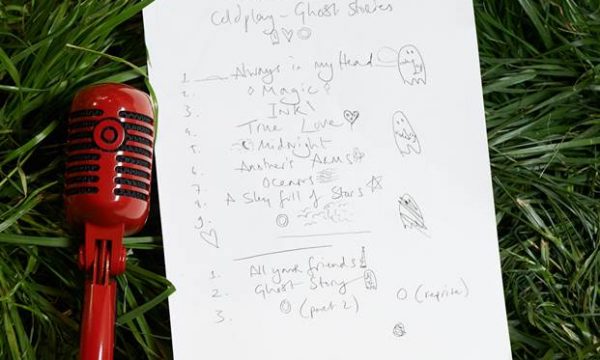 Coldplay - Ghost Stories
1. Always in my Head
2. Magic
3. INK!
4. True Love
5. Midnight
6. Another's Arms
7. Oceans
8. A Sky full of Stars
9. O
1. All your friends
2. Ghost Story
3. O (part 2) O (reprise)